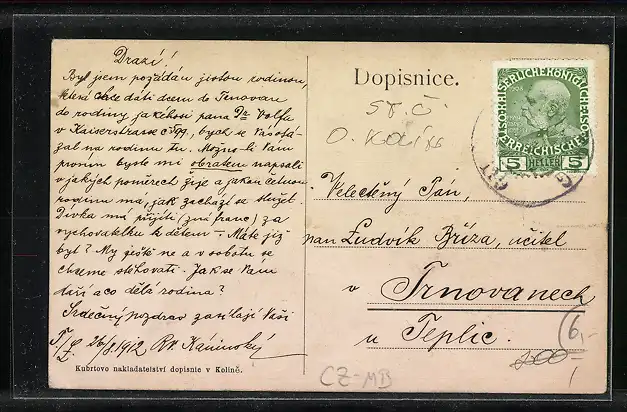 Drazí!
Byl jsem požádán jistou rodinou,
která chce dáti dceru do Trnovan
do rodiny jakéhosi pana Dra Volfa
v Kaiserstrasse č. 799, bych se Vás otá-
zal na rodinu tu. Možno-li Vám
prosím byste mi obratem napsali
v jakých poměrech žije a jak četnou
rodinu má, jak zachází se služ.
Dívka má přijíti (zná franc) za
vychovatelku k dětem –. Máte již
byt? My ještě ne a v sobotu se
chceme stěhovati. Jak se Vám
daří a co dělá rodina?
Srdečný pozdrav zasílají Vaši
26/8 1912 Rd. Kaminský
Kubrtovo nakladatelství dopisnic v Kolíně.
Dopisnice.
ST. Č.
O. Kolín
5 HELLER 5
Velectěný Pán,
pan Ludvík Bříza, učitel
v Trnovanech
u Teplic.
6,-
200
CZ-MB